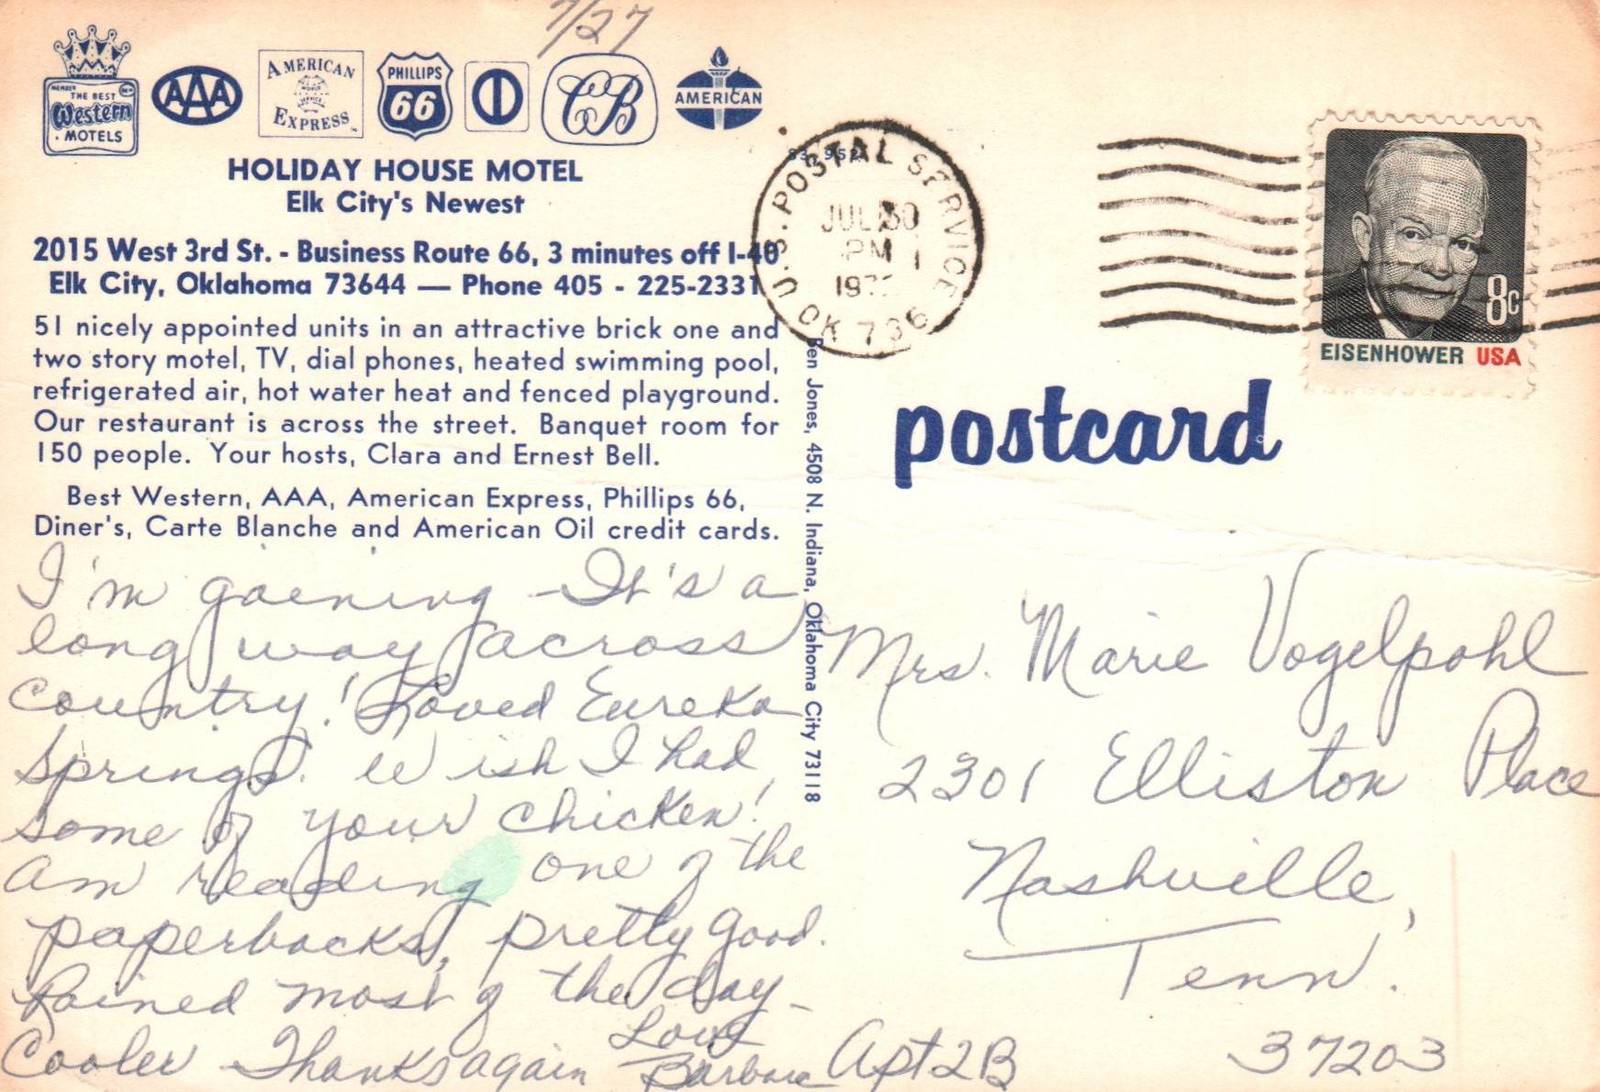 7/27
MEMBER
THE BEST
Western
MOTELS
AAA
AMERICAN
EXPRESS
PHILLIPS
66
CB
AMERICAN
HOLIDAY HOUSE MOTEL
Elk City's Newest
2015 West 3rd St. - Business Route 66, 3 minutes off I-40
Elk City, Oklahoma 73644 — Phone 405 - 225-2331
51 nicely appointed units in an attractive brick one and
two story motel, TV, dial phones, heated swimming pool,
refrigerated air, hot water heat and fenced playground.
Our restaurant is across the street. Banquet room for
150 people. Your hosts, Clara and Ernest Bell.
Best Western, AAA, American Express, Phillips 66,
Diner's, Carte Blanche and American Oil credit cards.
I'm gaening - It's a
long way across
country! Loved Eureka
Springs. Wish I had
some of your chicken!
Am reading one of the
paperbacks, pretty good.
Rained most of the day -
Cooler Thanks again
Love
Barbara
Ben Jones, 4508 N. Indiana, Oklahoma City 73118
U.S. POSTAL SERVICE
OK 736
JUL 30
PM
EISENHOWER USA
8c
postcard
Mrs. Marie Vogelpohl
2301 Elliston Place
Nashville,
Tenn.
Apt 2B 37203